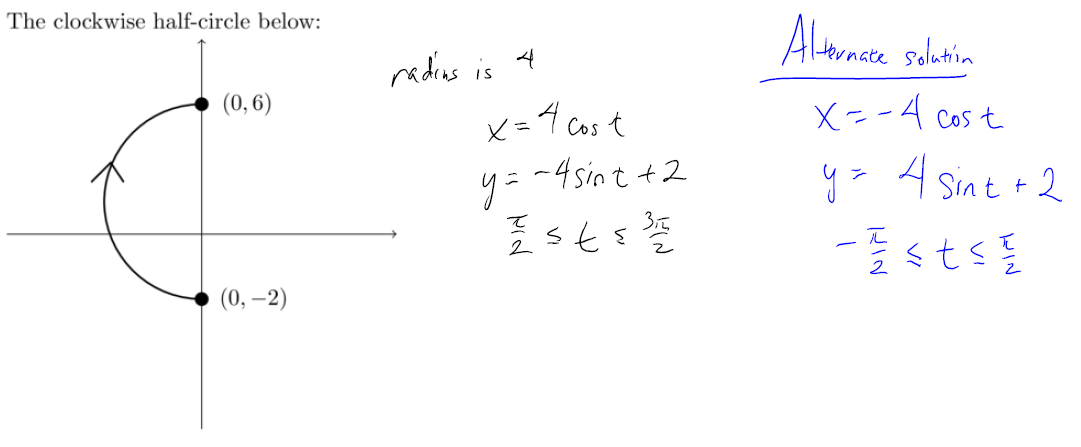 The clockwise half-circle below:
(0, 6)
(0, −2)
radius is 4
x = 4 cos t
y = -4 sin t + 2
π/2 ≤ t ≤ 3π/2
Alternate solution
x = -4 cos t
y = 4 sin t + 2
-π/2 ≤ t ≤ π/2